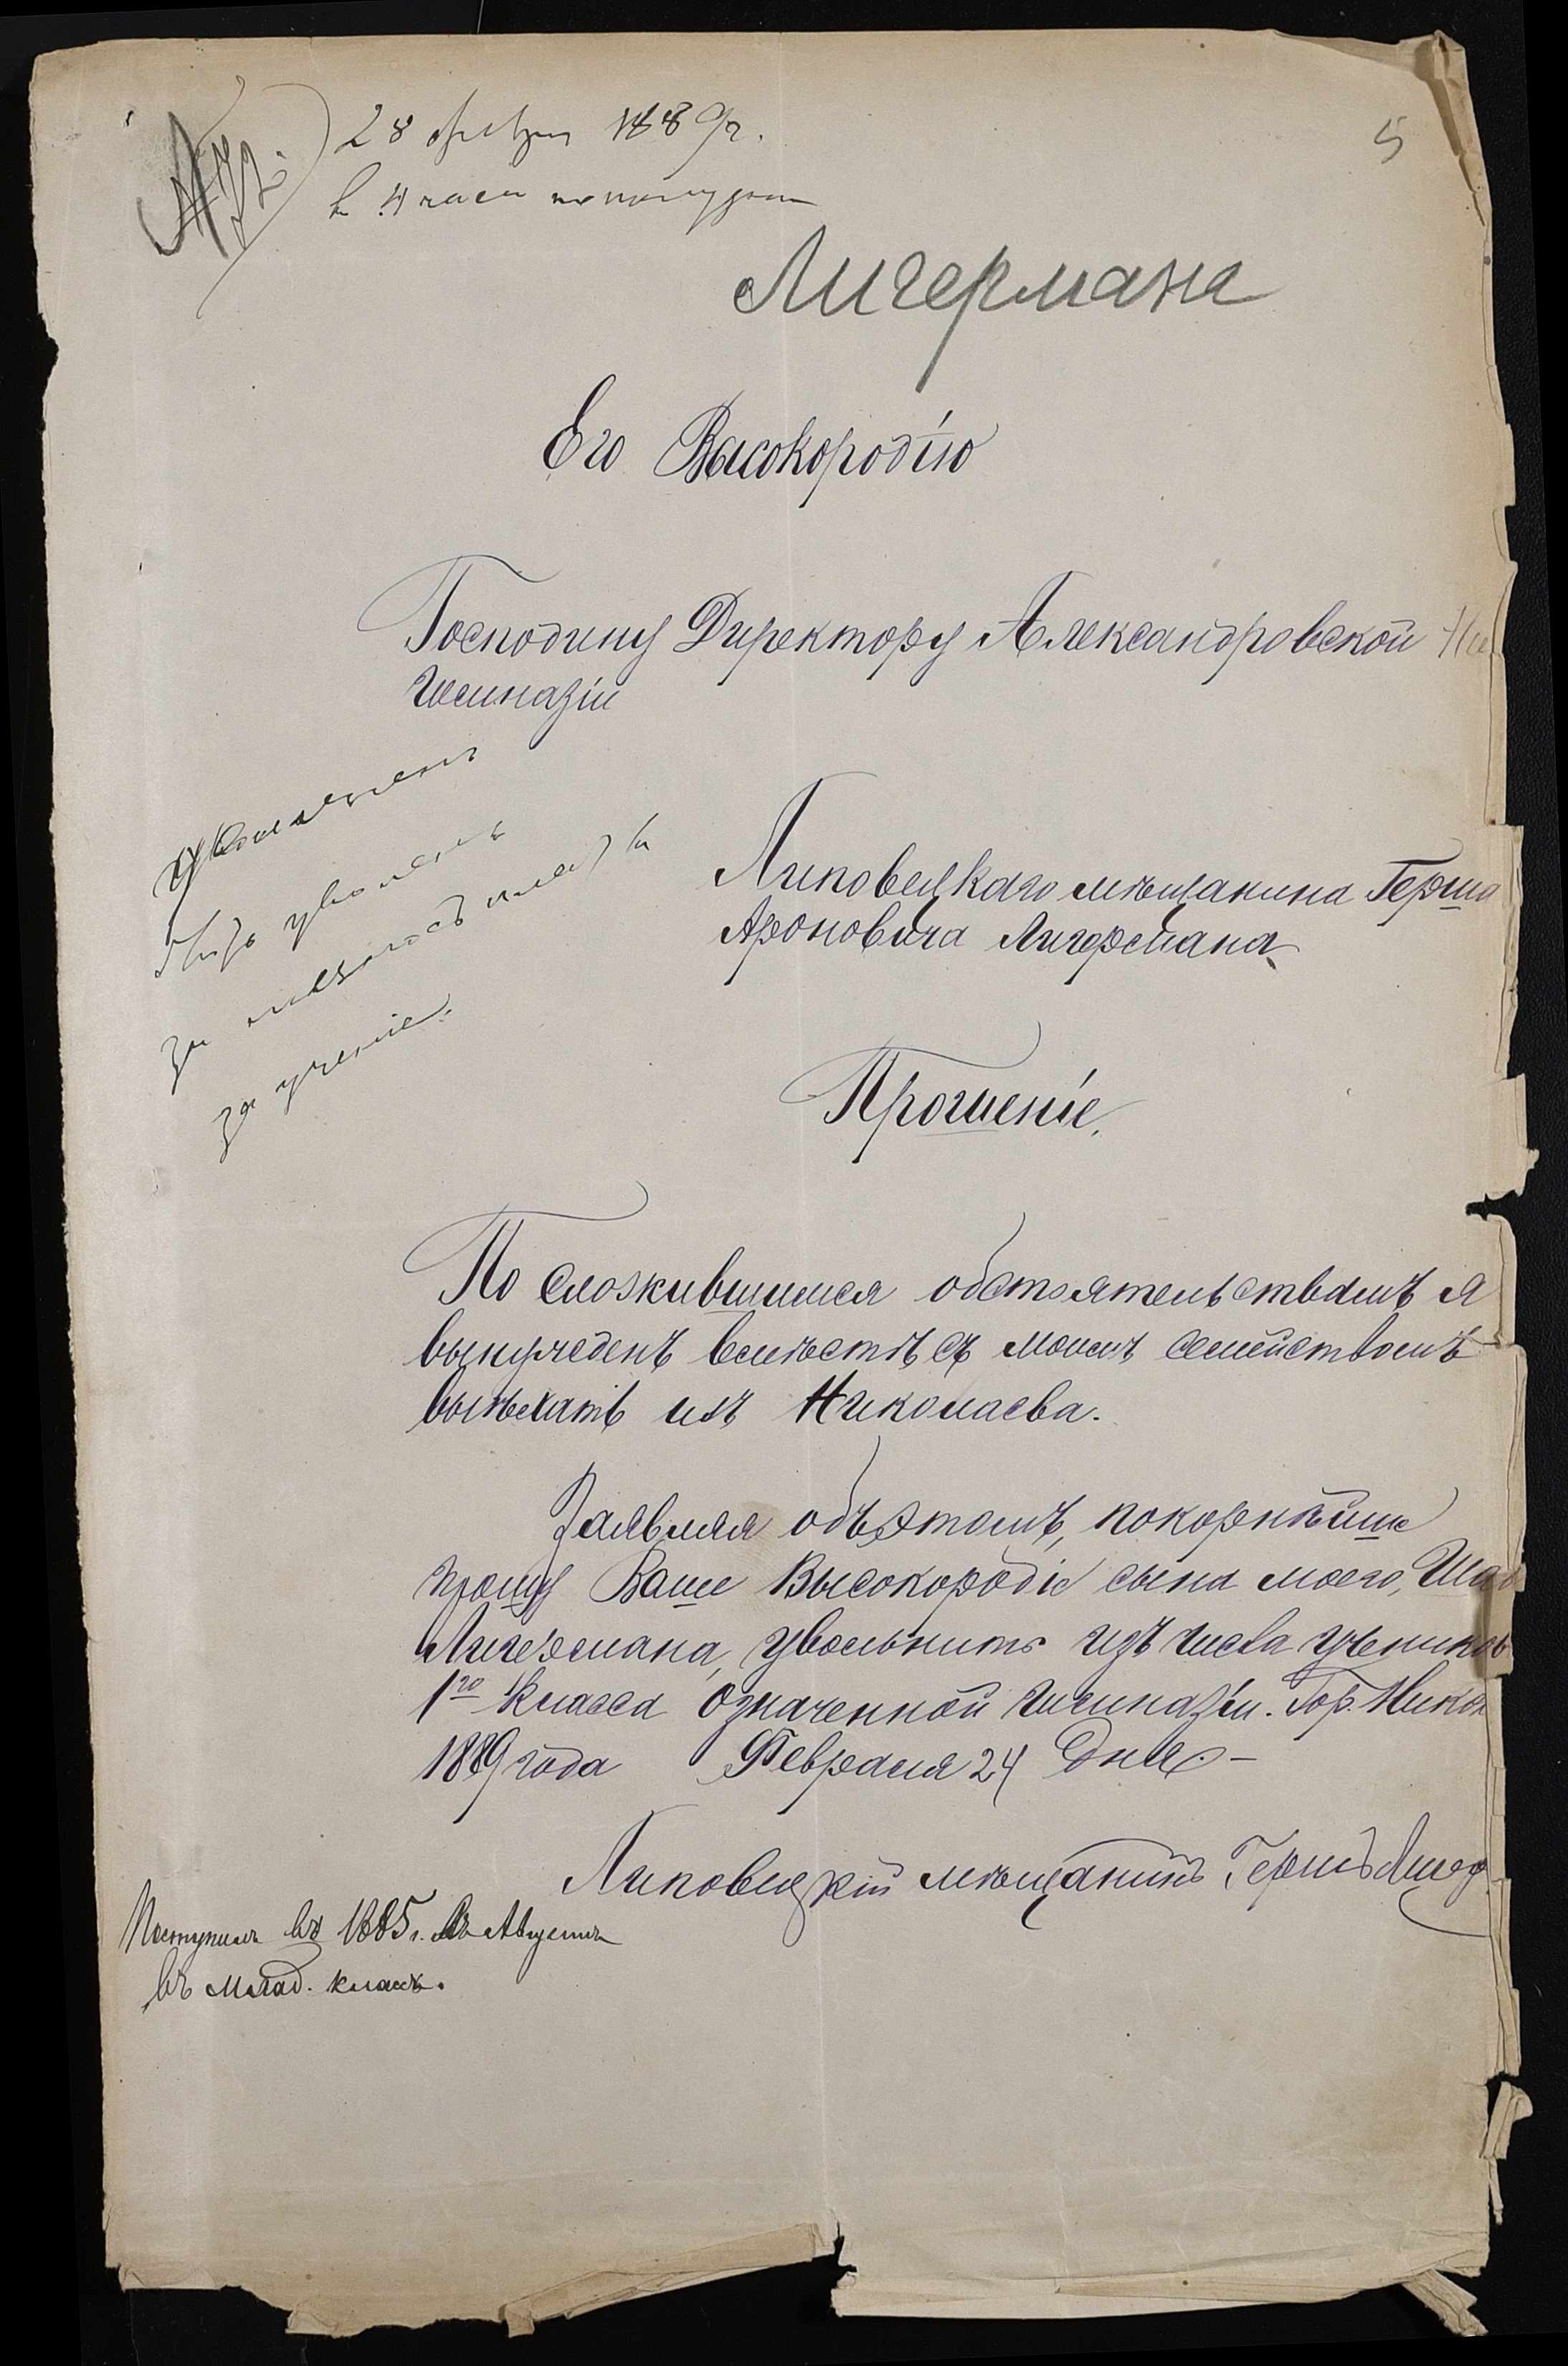 5
28 февр. 1889 г.
в 4 часа пополудни
Лигермана
Его Высокородію
Господину Директору Александровской
Гимназіи
Уволенъ
уволенъ
за платы
за ученіе.
Липовецкаго мѣщанина Герша
Ароновича Лигермана
Прошеніе.
По сложившимся обстоятельствамъ я
вынужденъ вмѣстѣ съ моимъ семействомъ
выѣхать изъ Николаева.
Заявляя объ этомъ, покорнѣйше
прошу Ваше Высокородіе сына моего,
Лигермана, увольнить изъ числа учениковъ
1го класса означенной гимназіи. Гор. Никол
1889 года Февраля 24 дня.–
Липовецкій мѣщанинъ Гершъ Лигер
Поступилъ въ 1885 г. въ Августѣ
въ млад. классъ.